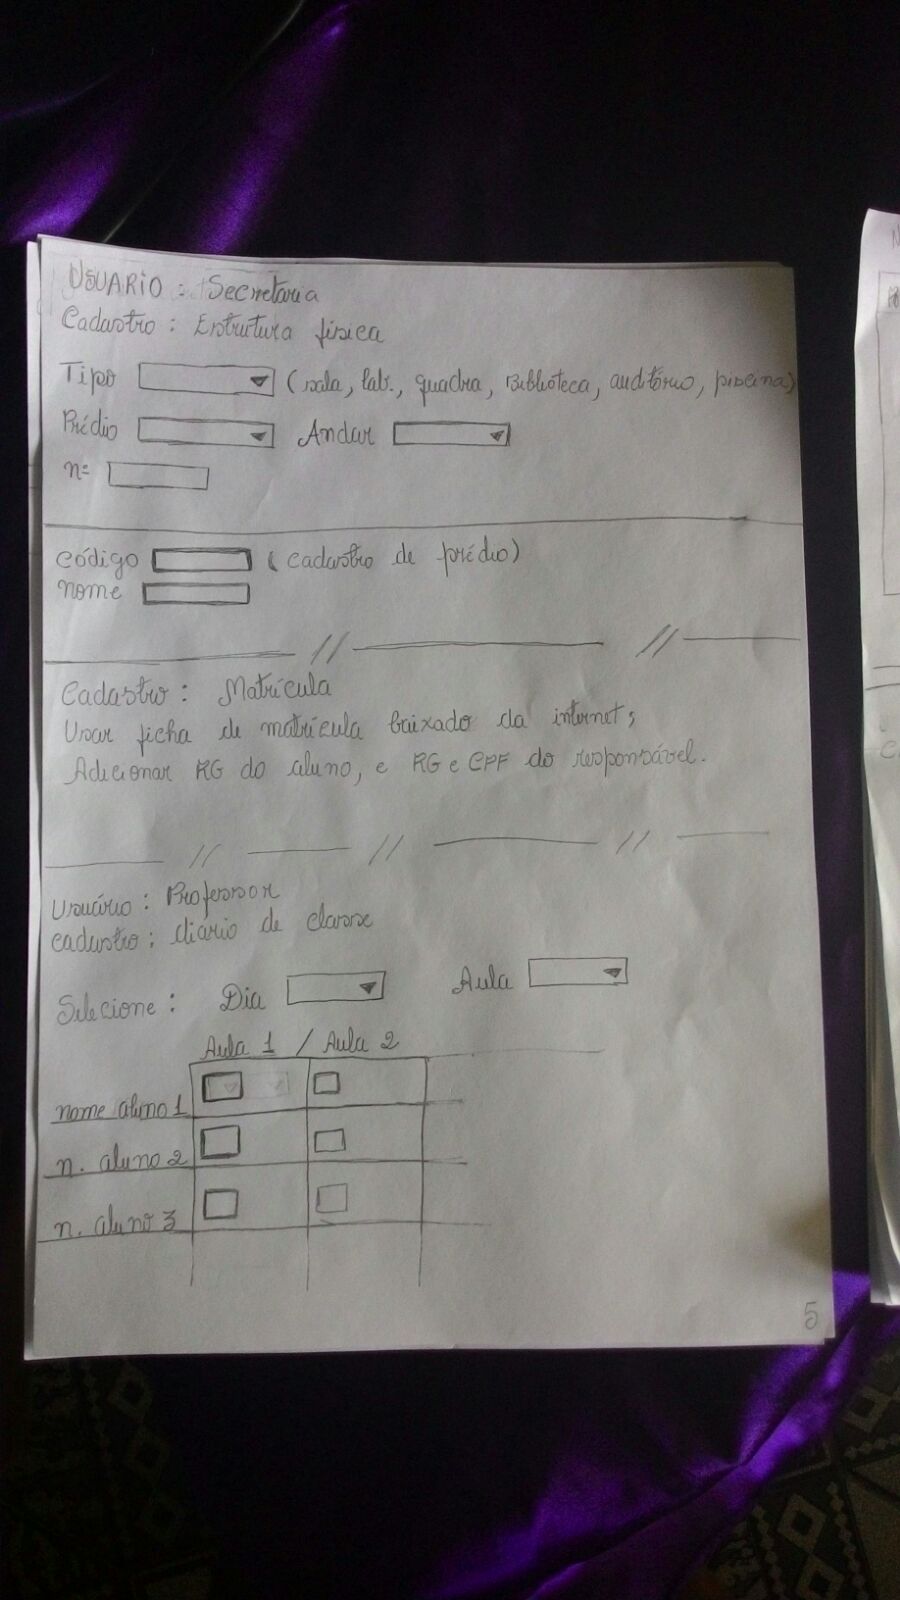 USUARIO : Secretaria
Cadastro : Estrutura física
Tipo (sala, lab., quadra, Biblioteca, auditório, piscina)
Prédio Andar
nº
Código (cadastro de prédio)
nome
//
//
Cadastro : Matrícula
Usar ficha de matrícula baixado da internet;
Adicionar RG do aluno, e RG e CPF do responsável.
// // //
Usuário : Professor
cadastro ; diário de classe
Selecione : Dia Aula
Aula 1 / Aula 2
nome aluno 1
n. aluno 2
n. aluno 3
5